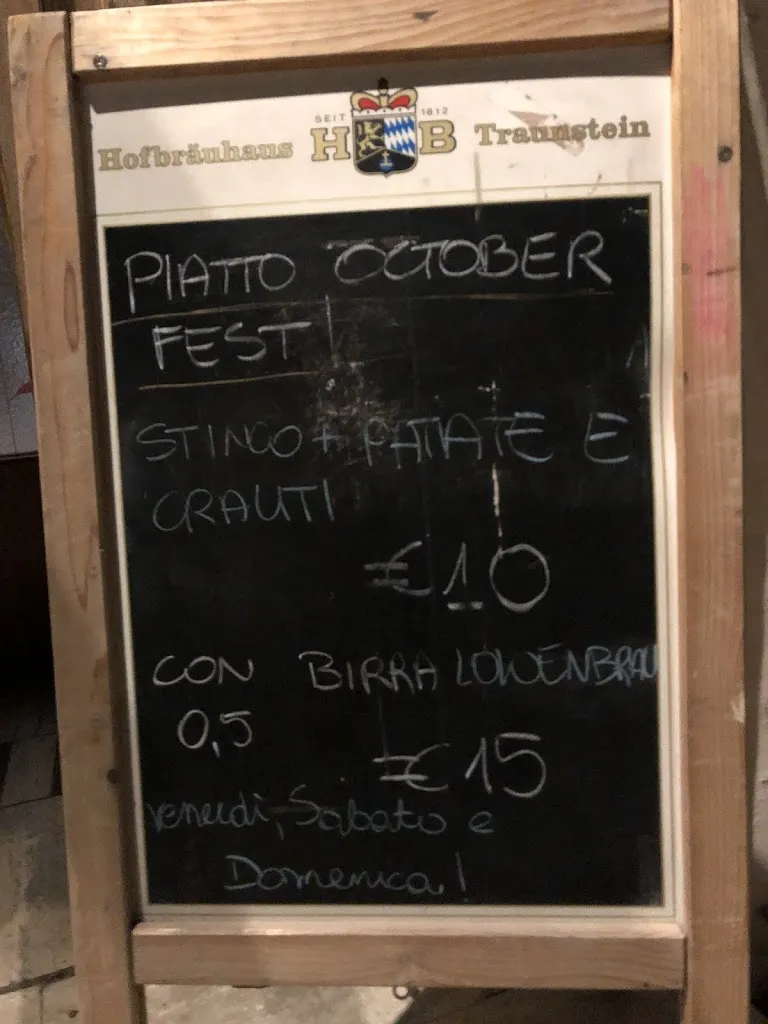 SEIT 1812
Hofbräuhaus HB Traunstein
PIATTO OCTOBER
FEST
STINCO + PATATE E
CRAUTI
€10
CON BIRRA LOWENBRAU
0,5
€15
venerdi, Sabato e
Domenica!